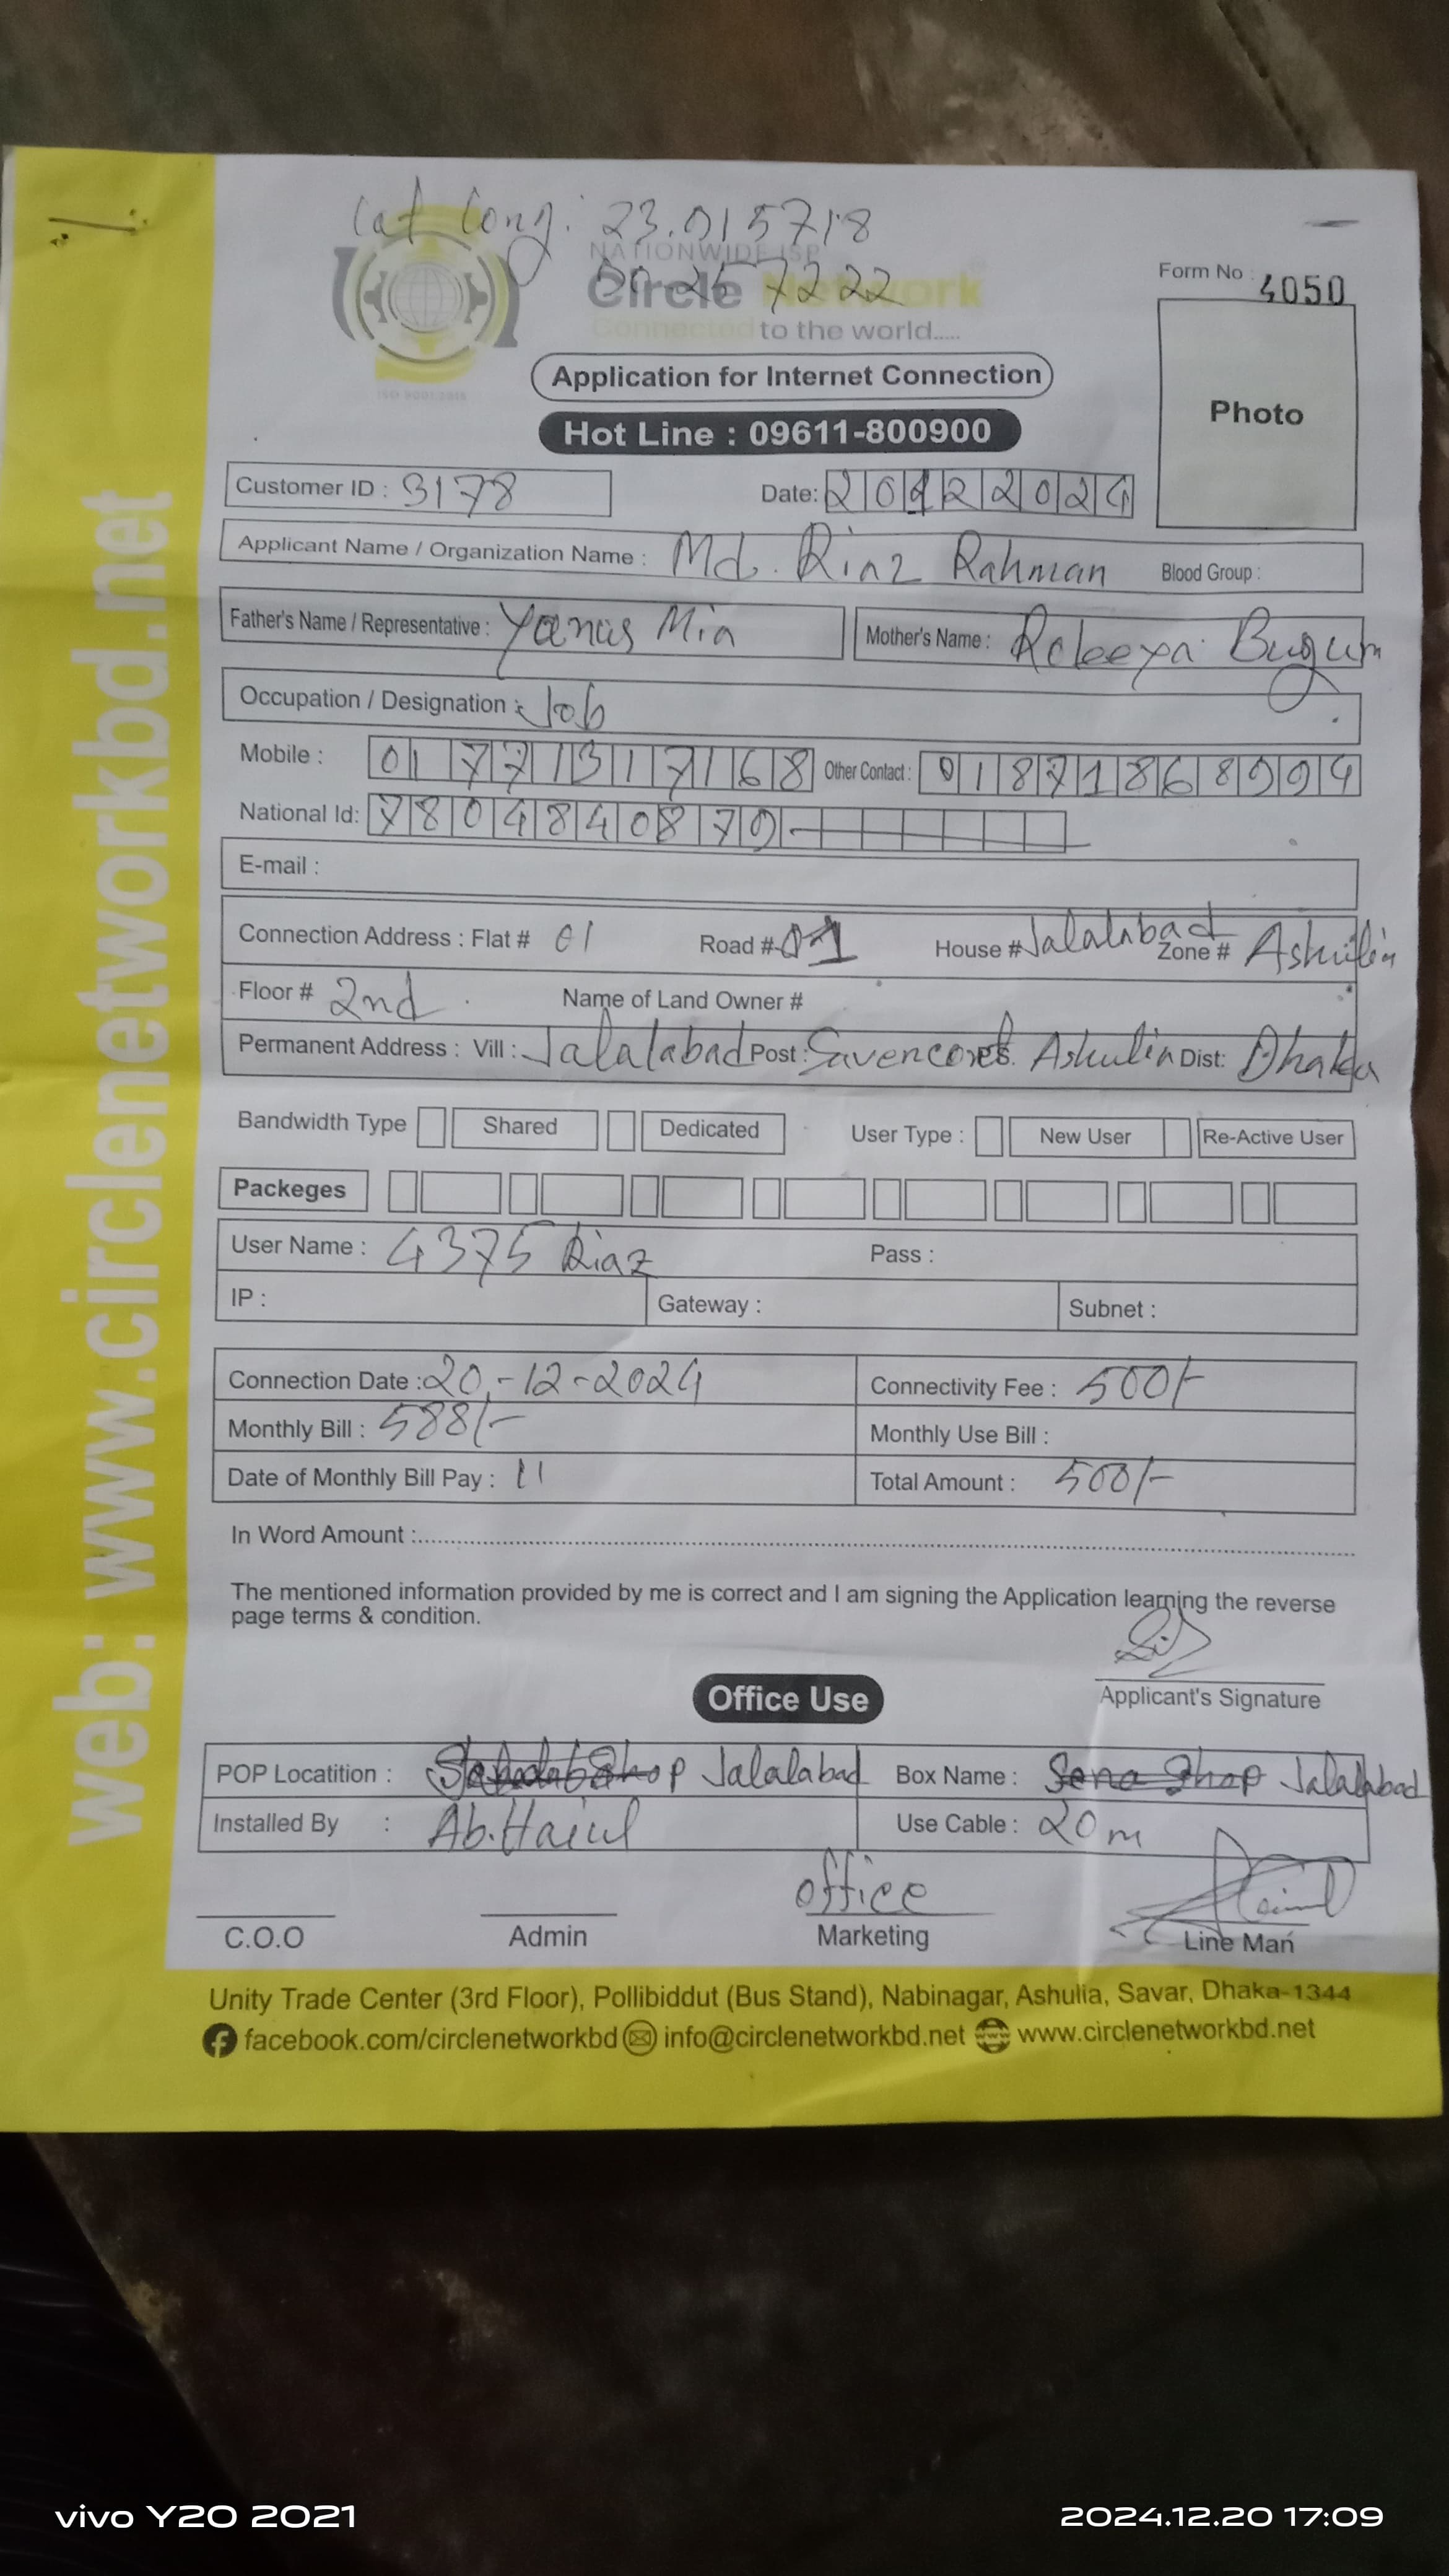 Lat Long: 23.015718
NATIONWIDE ISP
257222
Circle Network
Connected to the world.....
Form No : 4050
Photo
ISO 9001:2015
Application for Internet Connection
Hot Line : 09611-800900
Customer ID : 3178 Date: 20122024
Applicant Name / Organization Name : Md. Riaz Rahman Blood Group :
Father's Name / Representative : Yoanus Mia Mother's Name : Rokeeya Bugum
Occupation / Designation : Job
Mobile : 01771317168 Other Contact : 01871868994
National Id: 7804840879
E-mail :
Connection Address : Flat # 01 Road # 01 House # Jalalabad Zone # Ashulia
Floor # 2nd Name of Land Owner #
Permanent Address : Vill : Jalalabad Post : P.S. Ashulia Dist: Dhaka
Bandwidth Type Shared Dedicated User Type : New User Re-Active User
Packeges
User Name : 4375 Riaz Pass :
IP : Gateway : Subnet :
Connection Date : 20-12-2024 Connectivity Fee : 500/-
Monthly Bill : 588/- Monthly Use Bill :
Date of Monthly Bill Pay : 11 Total Amount : 500/-
In Word Amount :
The mentioned information provided by me is correct and I am signing the Application learning the reverse
page terms & condition.
Applicant's Signature
Office Use
POP Locatition : Jalalabad Box Name : Sena Shop Jalalabad
Installed By : Ab. Haiul Use Cable : 20m
office
C.O.O Admin Marketing Line Man
Unity Trade Center (3rd Floor), Pollibiddut (Bus Stand), Nabinagar, Ashulia, Savar, Dhaka-1344
facebook.com/circlenetworkbd info@circlenetworkbd.net www.circlenetworkbd.net
web: www.circlenetworkbd.net
vivo Y20 2021
2024.12.20 17:09